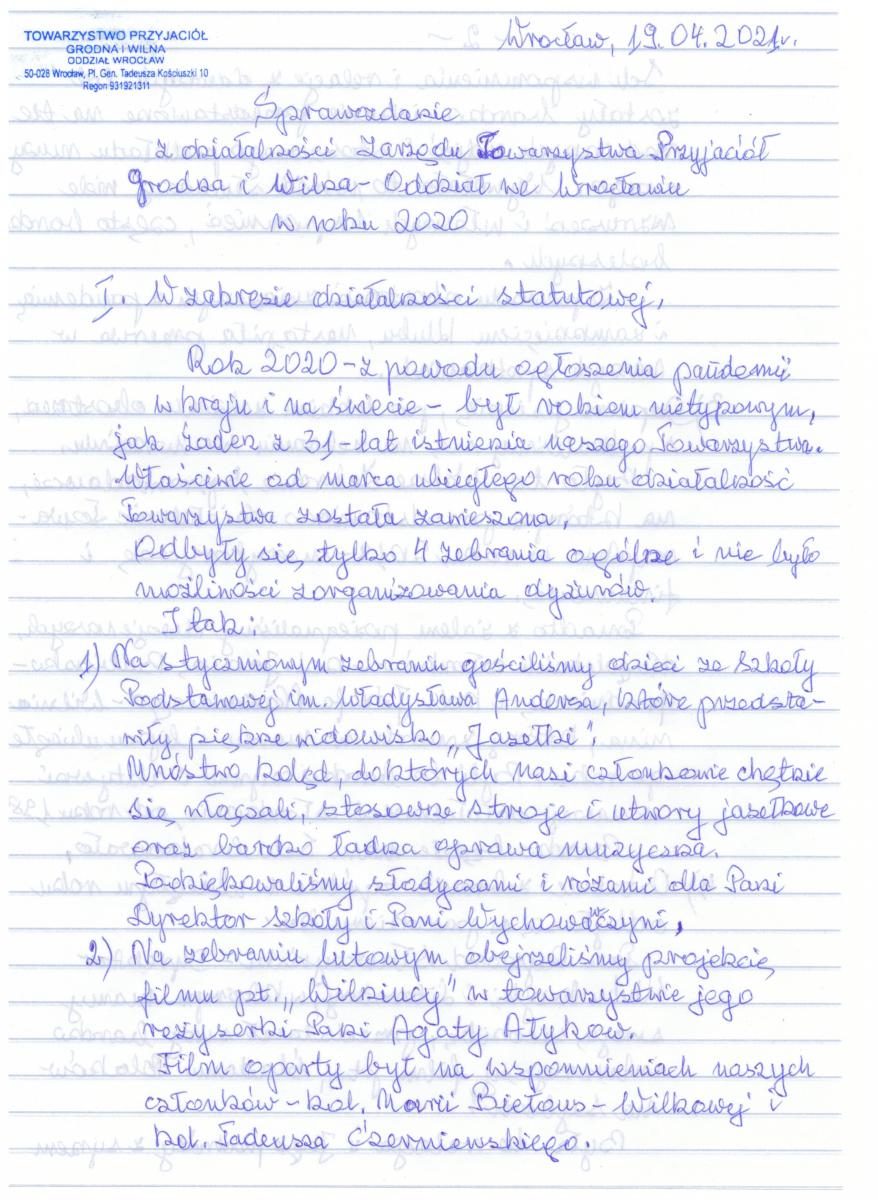 TOWARZYSTWO PRZYJACIÓŁ
GRODNA I WILNA
ODDZIAŁ WROCŁAW
50-028 Wrocław, Pl. Gen. Tadeusza Kościuszki 10
Regon 931921311
Wrocław, 19.04.2021r.
Sprawozdanie
z działalności Zarządu Towarzystwa Przyjaciół
Grodna i Wilna - Oddział we Wrocławiu
w roku 2020
I. W zakresie działalności statutowej,
Rok 2020 - z powodu ogłoszenia pandemii
w kraju i na świecie - był rokiem nietypowym,
jak żaden z 31-lat istnienia naszego Towarzystwa.
Właściwie od marca ubiegłego roku działalność
Towarzystwa została zawieszona,
Odbyły się tylko 4 zebrania ogólne i nie było
możliwości zorganizowania dyżurów.
I tak:
1) Na styczniowym zebraniu gościliśmy dzieci ze Szkoły
Podstawowej im. Władysława Andersa, które przedsta-
wiły piękne widowisko „Jasełki".
Mnóstwo kolęd, do których nasi członkowie chętnie
się włączali, stosowne stroje i utwory jasełkowe
oraz bardzo ładna oprawa muzyczna.
Podziękowaliśmy słodyczami i różami dla Pani
Dyrektor Szkoły i Pani Wychowawczyni,
2) Na zebraniu lutowym obejrzeliśmy projekcię
filmu pt. „Wilniucy" w towarzystwie jego
reżyserki Pani Agaty Atykow.
Film oparty był na wspomnieniach naszych
członków - kol. Marii Biełous - Wilkowej i
kol. Tadeusza Czerniewskiego.